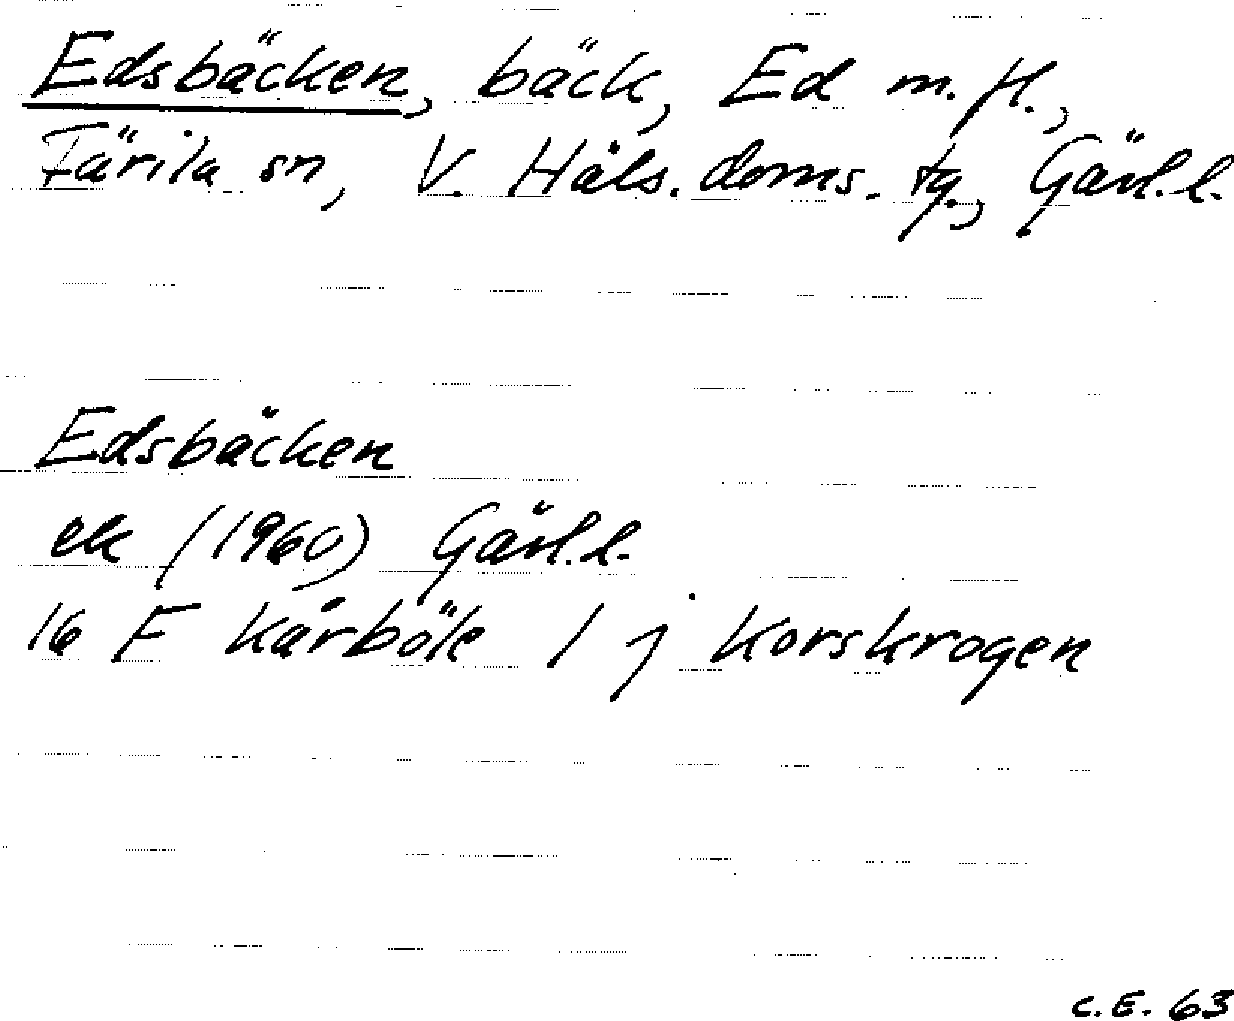 Edsbäcken, bäck, Ed m. fl.,
Färila sn, V. Häls. doms. tg., Gävl.l.
Edsbäcken
ek (1960) Gävl.l.
16 F Kårböle 1 j Korskrogen
C.E. 63